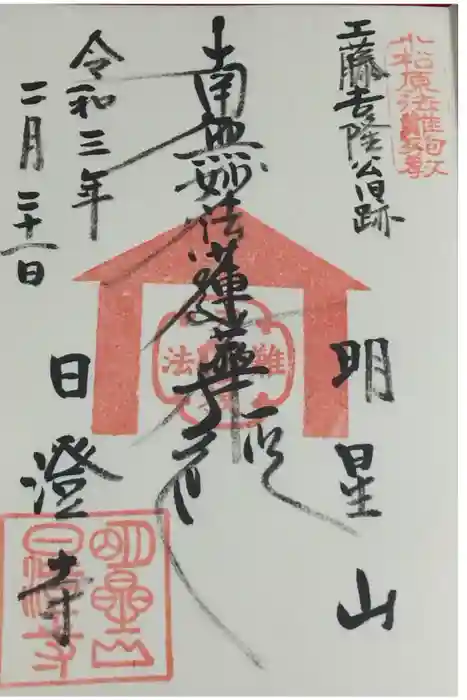 小松原法難殉教
工藤吉隆公旧跡
明星山
南無妙法蓮華経
法難
令和三年
二月二十一日
日澄寺
明星山
日澄寺